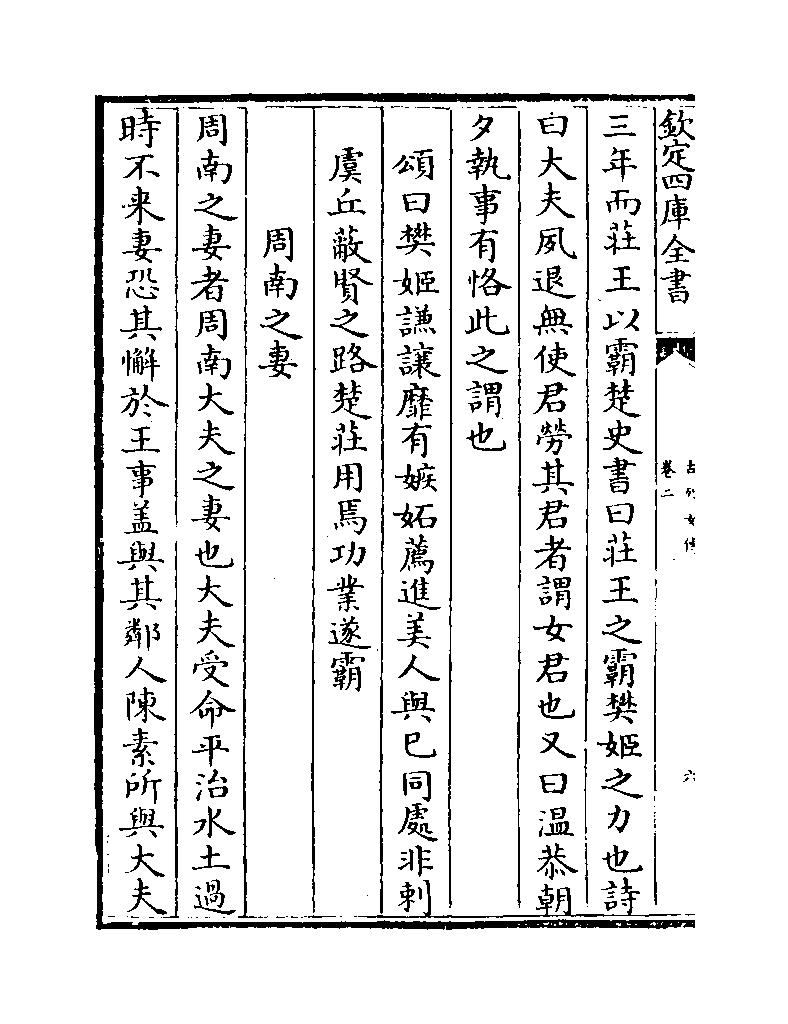 欽定四庫全書
古列女傳
卷二
六
三年而莊王以霸楚史書曰莊王之霸樊姬之力也詩
曰大夫夙退無使君勞其君者謂女君也又曰温恭朝
夕執事有恪此之謂也
頌曰樊姬謙讓靡有嫉妬薦進美人與已同處非刺
虞丘蔽賢之路楚莊用焉功業遂霸
周南之妻
周南之妻者周南大夫之妻也大夫受命平治水土過
時不来妻恐其懈於王事盖與其鄰人陳素所與大夫